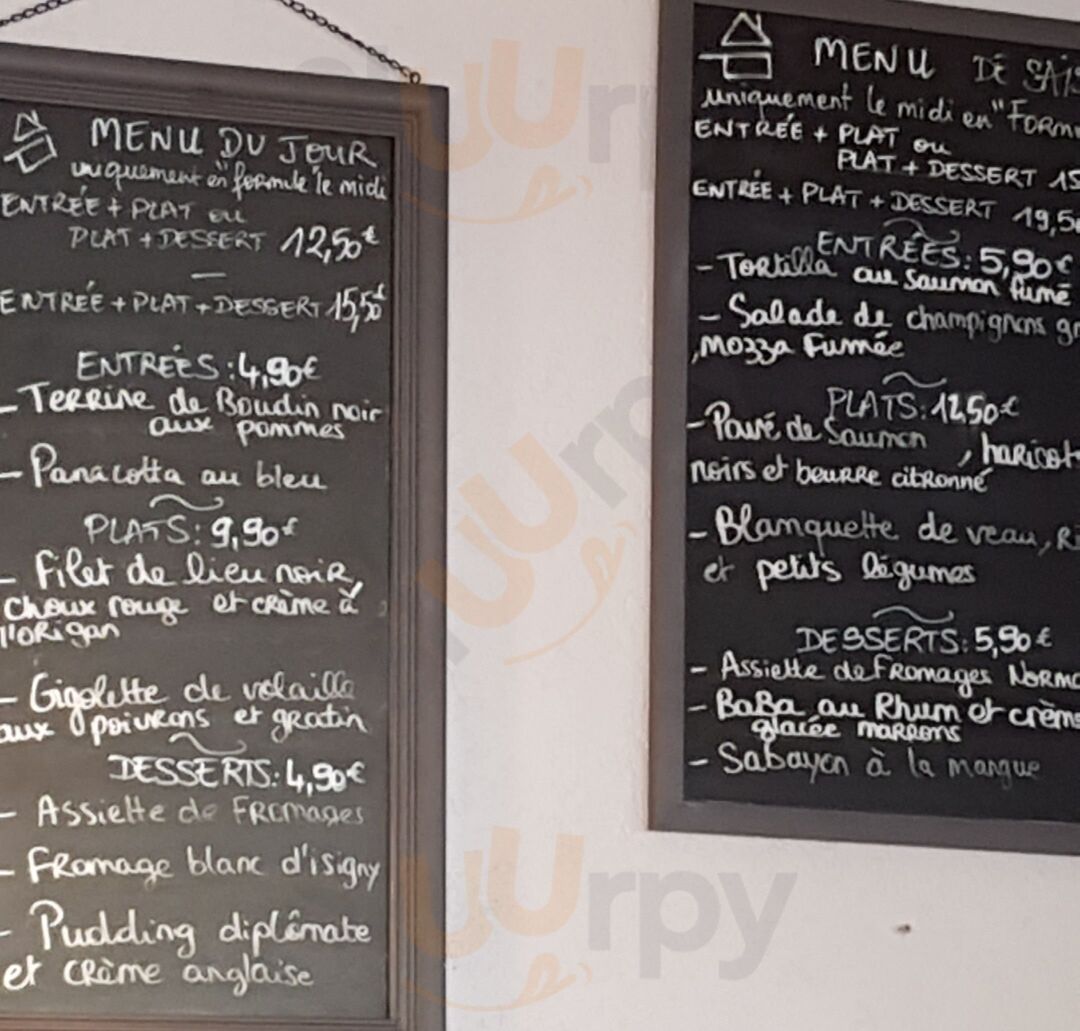 MENU DU JOUR
uniquement en "formule le midi
ENTRÉE + PLAT ou
PLAT + DESSERT 12,50€
ENTRÉE + PLAT + DESSERT 15,50€
ENTRÉES : 4,90€
- Terrine de Boudin noir
aux pommes
- Panacotta au bleu
PLATS : 9,90€
- Filet de lieu noir,
choux rouge et crème à
l'origan
- Gigolette de volaille
aux poivrons et gratin
DESSERTS : 4,90€
- Assiette de Fromages
- Fromage blanc d'isigny
- Pudding diplômate
et crème anglaise
MENU DE SAIS
uniquement le midi en "Form
ENTRÉE + PLAT ou
PLAT + DESSERT 15
ENTRÉE + PLAT + DESSERT 19,50
ENTRÉES : 5,90€
- Tortilla au saumon fumé
- Salade de champignons gr
, Mozza Fumée
PLATS : 12,50€
- Pavé de Saumon , haricot
noirs et beurre citronné
- Blanquette de veau, Ri
et petits légumes
DESSERTS : 5,90€
- Assiette de Fromages Norma
- BaBa au Rhum et crème
glacée marrons
- Sabayon à la mangue
uUrpy